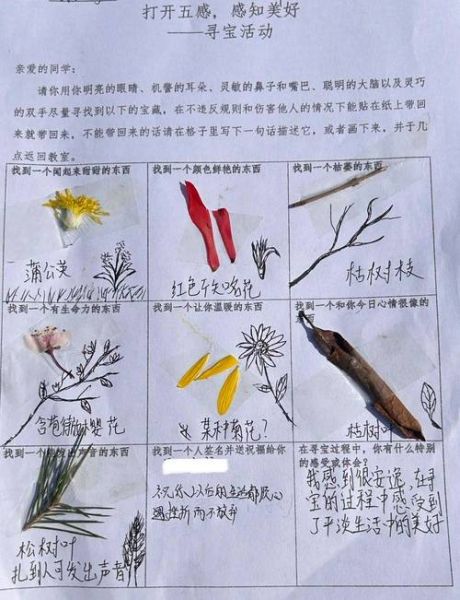 打开五感，感知美好
——寻宝活动
亲爱的同学：
请你用你明亮的眼睛、机警的耳朵、灵敏的鼻子和嘴巴、聪明的大脑以及灵巧
的双手尽量寻找到以下的宝藏，在不违反规则和伤害他人的情况下能贴在纸上带回
来就带回来，不能带回来的话请在格子里写下一句话描述它，或者画下来，并于几
点返回教室。
找到一个闻起来甜甜的东西
蒲公英
找到一个颜色鲜艳的东西
红色 花
找到一个枯萎的东西
枯树枝
找到一个有生命力的东西
含苞 樱花
找到一个让你温暖的东西
某种菊花？
找到一个和你今日心情很像的
东西
枯树叶
出声音的东西
松树叶
扎到人可发出声音
找到一个人签名并送祝福给你
祝你以后 都
遇挫折而不放弃
在寻宝过程中，你有什么特别
的感受或体会？
我感到很安逸，在寻
宝的过程中感受到
了平淡生活中的美好